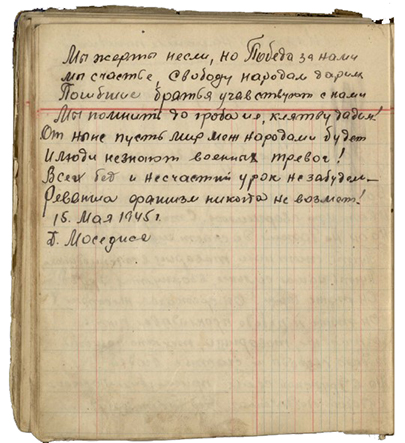 Мы жертвы несли, но Победа за нами
мы счастье, свободу народам дарим
Погибшие братья учавствуют с нами
Мы помнить до гроба их, клятву дадим!
От ныне пусть мир меж народами будет
И люди не знают военных тревог!
Всех бед и несчастий урок не забудем
Реванша фашизм никогда не возмет!
15. Мая 1945 г.